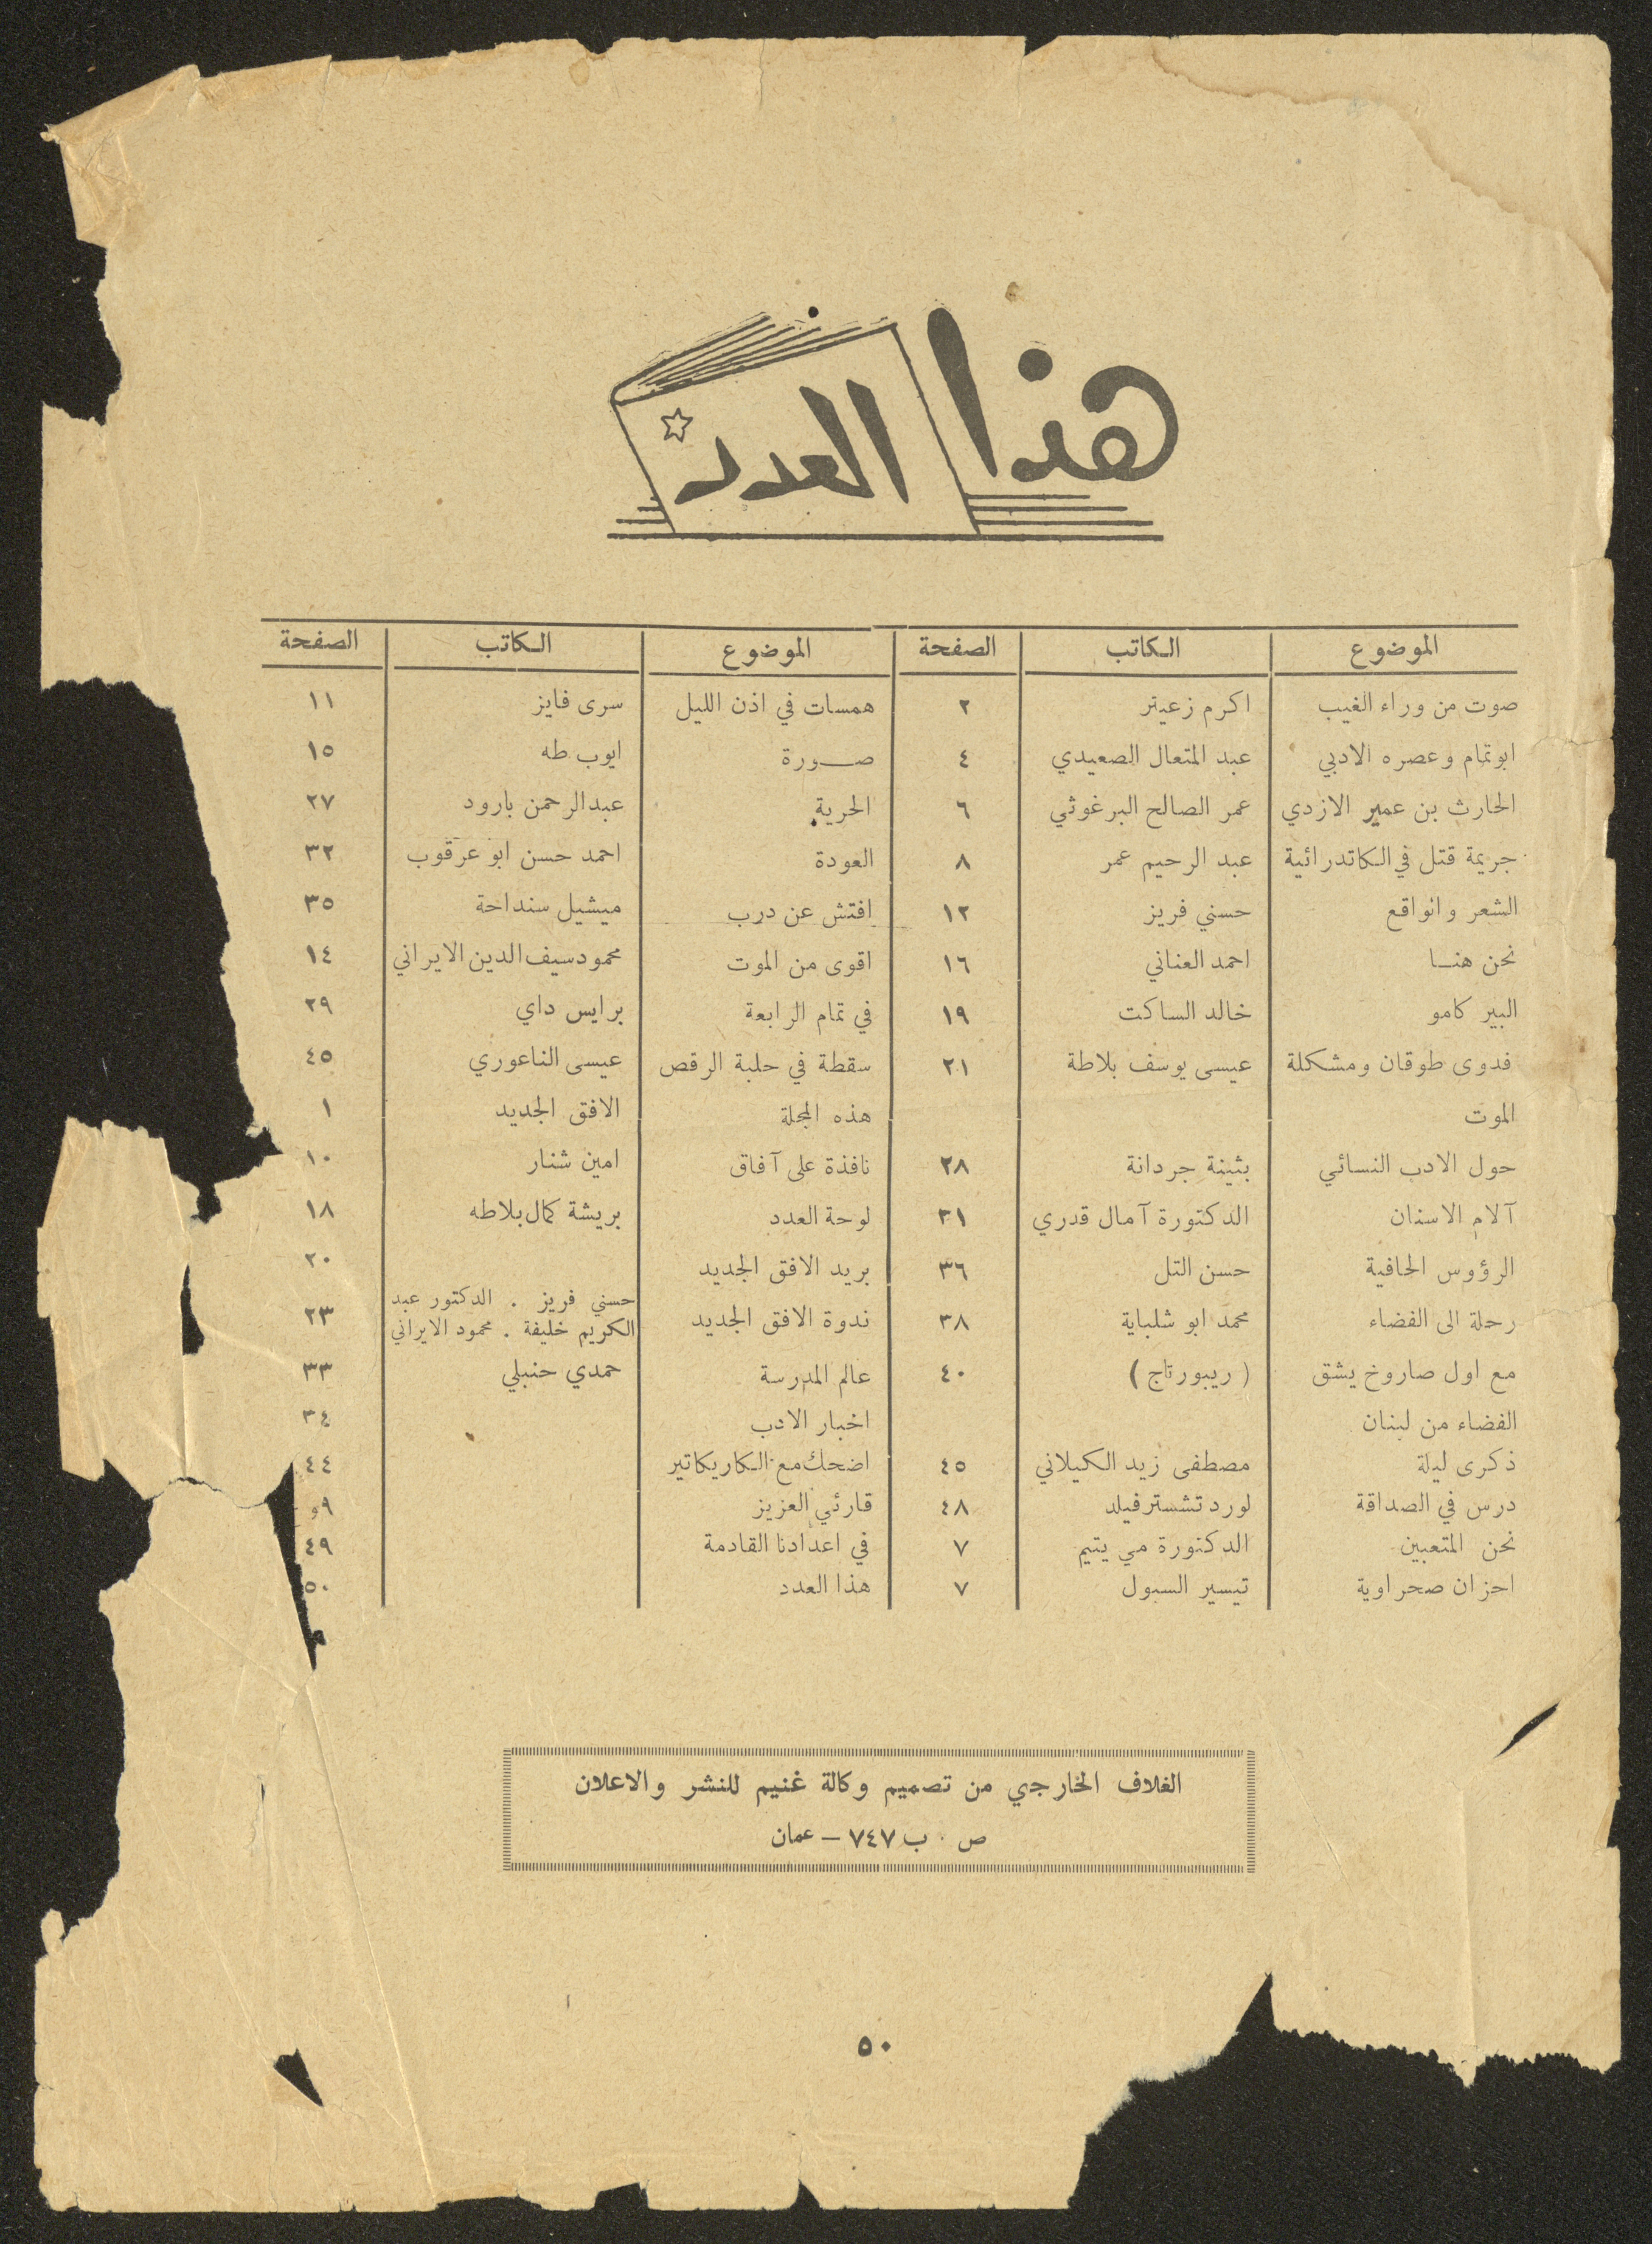 هذا العدد
الموضوع الكاتب الصفحة الموضوع الكاتب الصفحة
صوت من وراء الغيب اكرم زعيتر ٢ همسات في اذن الليل سرى فايز ١١
ابو تمام وعصره الادبي عبد المتعال الصعيدي ٤ صورة ايوب طه ١٥
الحارث بن عمير الازدي عمر الصالح البرغوثي ٦ الحرية عبدالرحمن بارود ٢٧
جريمة قتل في الكاتدرائية عبد الرحيم عمر ٨ العودة احمد حسن ابو عرقوب ٣٢
الشعر والواقع حسني فريز ١٢ افتش عن درب ميشيل سنداحة ٣٥
نحن هنا احمد العناني ١٦ اقوى من الموت محمود سيف الدين الايراني ١٤
البير كامو خالد الساكت ١٩ في تمام الرابعة برايس داي ٢٩
فدوى طوقان ومشكلة عيسى يوسف بلاطة ٢١ سقطة في حلبة الرقص عيسى الناعوري ٤٥
الموت هذه المجلة الافق الجديد ١
حول الادب النسائي بثينة جردانة ٢٨ نافذة على آفاق امين شنار ١٠
آلام الاسنان الدكتورة آمال قدري ٣١ لوحة العدد بريشة كمال بلاطه ١٨
الرؤوس الحافية حسن التل ٣٦ بريد الافق الجديد ٢٠
رحلة الى الفضاء محمد ابو شلباية ٣٨ ندوة الافق الجديد حسني فريز . الدكتور عبد
الكريم خليفة . محمود الايراني ٢٣
مع اول صاروخ يشق ( ريبورتاج ) ٤٠ عالم المدرسة حمدي حنبلي ٣٣
الفضاء من لبنان اخبار الادب ٣٤
ذكرى ليلة مصطفى زيد الكيلاني ٤٥ اضحك مع الكاريكاتير ٤٤
درس في الصداقة لورد تشسترفيلد ٤٨ قارئي العزيز ٩و
نحن المتعبين الدكتورة مي يتيم ٧ في اعدادنا القادمة ٤٩
احزان صحراوية تيسير السبول ٧ هذا العدد ٥٠
الغلاف الخارجي من تصميم وكالة غنيم للنشر والاعلان
ص . ب ٧٤٧ - عمان
٥٠